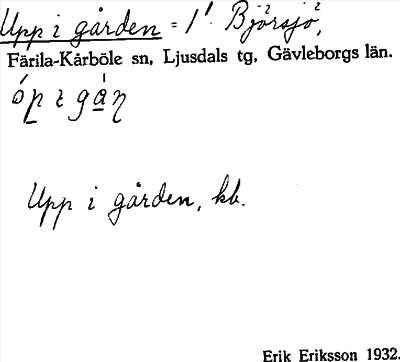 Upp i gården = 1′. Björsjö,
Färila-Kårböle sn, Ljusdals tg, Gävleborgs län.
Upp i gården, kb.
Erik Eriksson 1932.